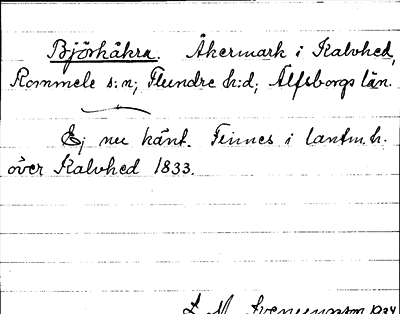 Björhåkra. Åkermark i Kalvhed,
Rommele s:n; Flundre h:d; Älfsborgs län.
Ej nu känt. Finnes i lantm.h.
över Kalvhed 1833.
1934